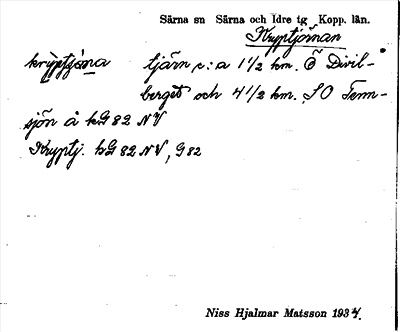 Särna sn Särna och Idre tg Kopp. län.
Kryptjörnan
krỳptjø̀na tjärn c:a 1 1/2 km. Ö Divil-
berget och 4 1/2 km. SO Tenn-
sjön å kG82 NV
Kryptj. kG82 NV, G82
Niss Hjalmar Matsson 1934.